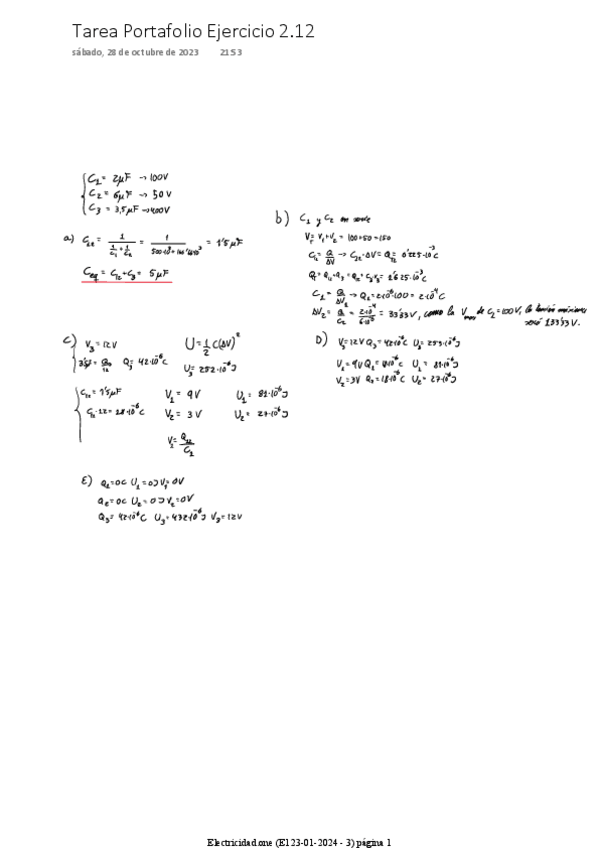 Tarea Portafolio Ejercicio 2.12
sábado, 28 de octubre de 2023 21:53
C₁ = 2μF → 100V
C₂ = 6μF → 50V
C₃ = 3,5μF → 400V
a) C₁₂ = 1/(1/C₁ + 1/C₂) = = 1'5μF
Ceq = C₁₂ + C₃ = 5μF
b) C₁ y C₂ en serie
V_T = V₁ + V₂ = 100 + 50 = 150
C₁₂ = Q/ΔV → C₁₂·ΔV = Q₁₂ = 0'225·10⁻³C
C₁ = Q/ΔV₁ → Q₁ = 2·10⁻⁶·100 = 2·10⁻⁴C
ΔV₂ = Q/C₂ = 2·10⁻⁴/6·10⁻⁶ = 33'33V, como la Vmax de C₁ = 100V, la tensión máxima
será 133'33V.
c) V₃ = 12V U = 1/2 C(ΔV)²
Q₃ = 42·10⁻⁶C U₃ = 252·10⁻⁶J
C₁₂ = 1'5μF V₁ = 9V U₁ = 81·10⁻⁶J
C₁₂·12 = 18·10⁻⁶C V₂ = 3V U₂ = 27·10⁻⁶J
V₁ = Q₁₂/C₁
D) V₃ = 12V Q₃ = 42·10⁻⁶C
V₁ = 9V U₁ = 81·10⁻⁶J
V₂ = 3V Q₂ = 18·10⁻⁶C U₂ = 27·10⁻⁶J
E) Q₁ = 0C U₁ = 0J V₁ = 0V
Q₂ = 0C U₂ = 0J V₂ = 0V
Q₃ = 42·10⁻⁶C U₃ = 432·10⁻⁶J V₃ = 12V
Electricidad.one (E123-01-2024 - 3) página 1